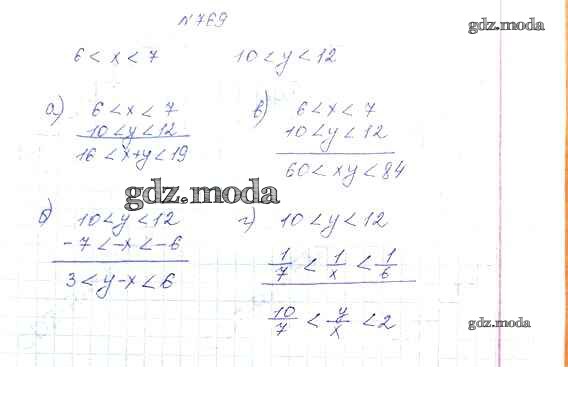 №769
gdz.moda
6 < x < 7    10 < y < 12
а) 6 < x < 7
10 < y < 12
16 < x+y < 19
в) 6 < x < 7
10 < y < 12
60 < xy < 84
gdz.moda
б) 10 < y < 12
-7 < -x < -6
3 < y-x < 6
г) 10 < y < 12
1/7 < 1/x < 1/6
10/7 < y/x < 2
gdz.moda